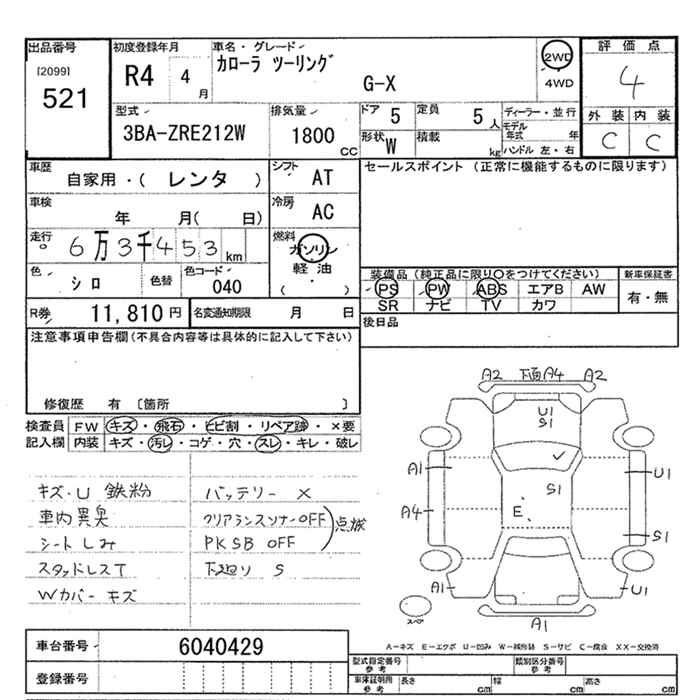 出品番号 初度登録年月 車名・グレード 評価点
[2099] 521 R4 4月 カローラ ツーリング G-X 2WD 4WD 4
外装 内装
C C
型式 3BA-ZRE212W 排気量 1800 CC ドア 5 定員 5人 ディーラー・並行
形状 W 積載 kg モデル年式 年 ハンドル 左・右
車歴 自家用・( レンタ ) シフト AT
セールスポイント (正常に機能するものに限ります)
車検 年 月( 日) 冷房 AC
走行 6万3千453km 燃料 ガソリン 軽油 ( )
色 シロ 色替 色コード 040
装備品 (純正品に限り○をつけてください) 新車保証書
PS PW ABS エアB AW 有・無
SR ナビ TV カワ
R券 11,810円 名変通知期限 月 日
後日品
注意事項申告欄(不具合内容等は具体的に記入して下さい)
修復歴 有 〔箇所 〕
検査員記入欄 FW キズ・飛石・ヒビ割・リペア跡・×要
内装 キズ・汚レ・コゲ・穴・スレ・キレ・破レ
キズ・U 鉄粉 バッテリー X
車内異臭 クリアランスソナーOFF
シートしみ PKSB OFF
点滅
スタッドレスT 下廻り S
Wカバー キズ
A2 下面A4 A2
U1
S1
A1 U1
S1
E
A4
S1
A1 U1
スペア
A1
A-キズ E-エクボ U-凹み W-補修跡 S-サビ C-腐食 XX-交換済
車台番号 6040429
登録番号
型式指定番号 参考 類別区分番号 参考
車庫証明用 参考 長さ cm 幅 cm 高さ cm